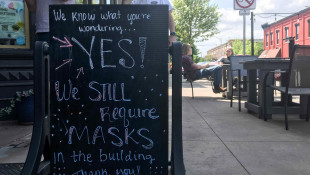 We know what you're
wondering...
YES!
We STILL
Require
MASKS
in the building
Thank you!